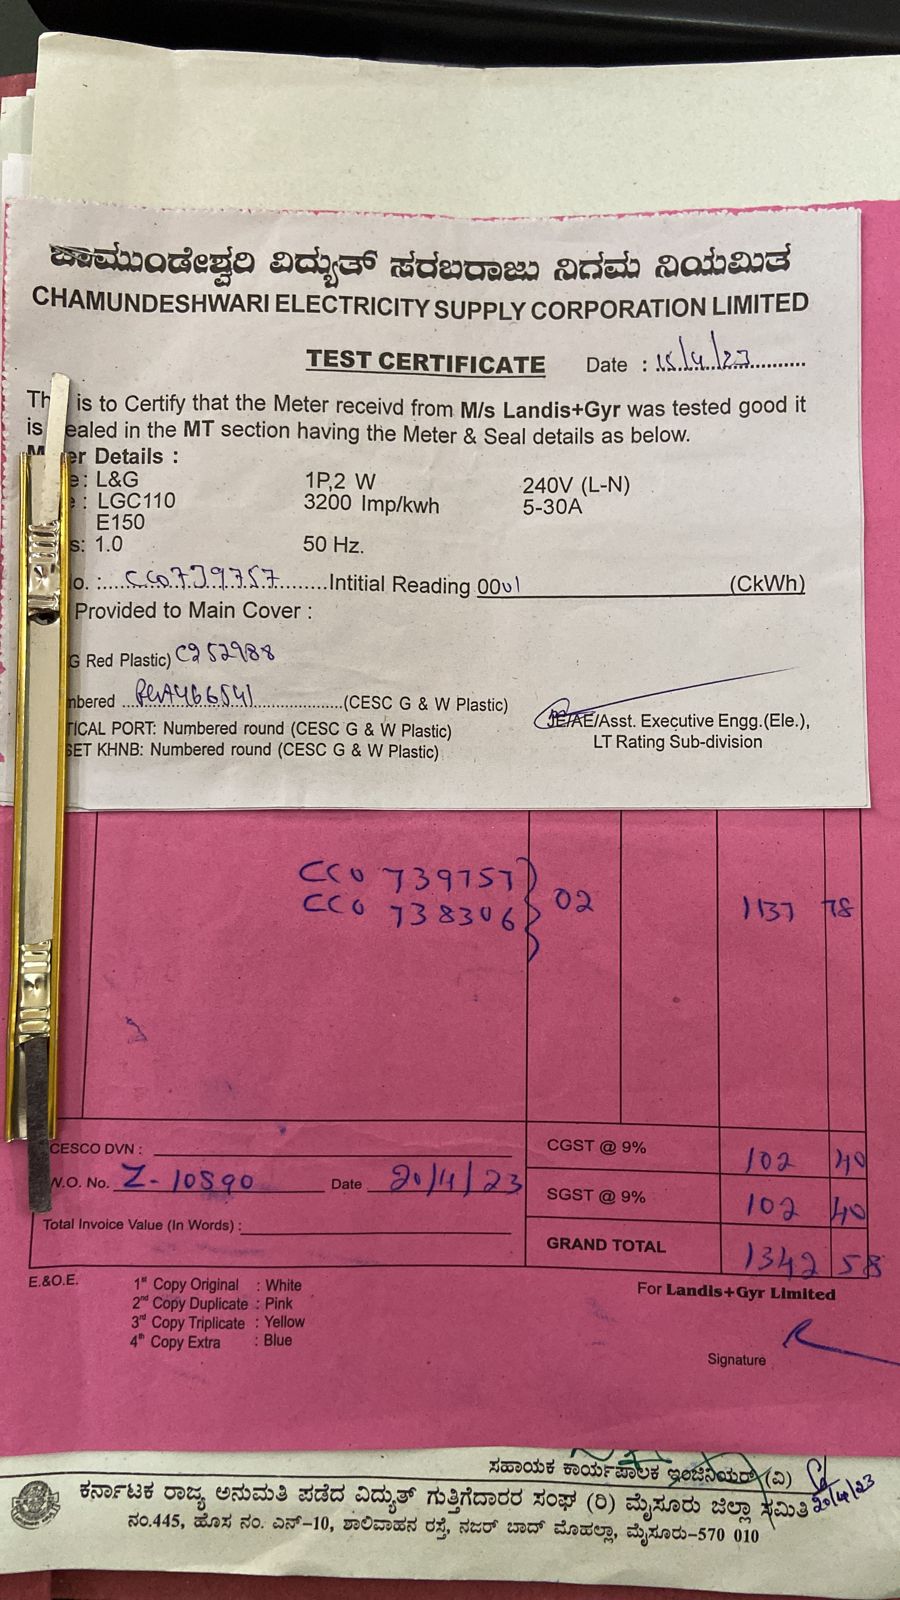 ಚಾಮುಂಡೇಶ್ವರಿ ವಿದ್ಯುತ್ ಸರಬರಾಜು ನಿಗಮ ನಿಯಮಿತ
CHAMUNDESHWARI ELECTRICITY SUPPLY CORPORATION LIMITED
TEST CERTIFICATE Date : 15/4/23
is to Certify that the Meter receivd from M/s Landis+Gyr was tested good it
is ealed in the MT section having the Meter & Seal details as below.
er Details :
: L&G 1P,2 W 240V (L-N)
: LGC110 3200 Imp/kwh 5-30A
E150
s: 1.0 50 Hz.
o. : CC0739757 Intitial Reading 0001 (CkWh)
Provided to Main Cover :
G Red Plastic) C252988
mbered 466541 (CESC G & W Plastic)
JE/AE/Asst. Executive Engg.(Ele.),
TICAL PORT: Numbered round (CESC G & W Plastic)
LT Rating Sub-division
SET KHNB: Numbered round (CESC G & W Plastic)
CC0 739757
CC0 738306 } 02 1137 78
CESCO DVN : CGST @ 9% 102 40
W.O. No. Z-10890 Date 20/4/23
SGST @ 9% 102 40
Total Invoice Value (In Words) :
GRAND TOTAL 1342 58
E.&O.E. 1st Copy Original : White
For Landis+Gyr Limited
2nd Copy Duplicate : Pink
3rd Copy Triplicate : Yellow
4th Copy Extra : Blue
Signature
ಸಹಾಯಕ ಕಾರ್ಯಪಾಲಕ ಇಂಜಿನಿಯರ್ (ವಿ)
20/4/23
ಕರ್ನಾಟಕ ರಾಜ್ಯ ಅನುಮತಿ ಪಡೆದ ವಿದ್ಯುತ್ ಗುತ್ತಿಗೆದಾರರ ಸಂಘ (ರಿ) ಮೈಸೂರು ಜಿಲ್ಲಾ ಸಮಿತಿ
ನಂ.445, ಹೊಸ ನಂ. ಎನ್-10, ಶಾಲಿವಾಹನ ರಸ್ತೆ, ನಜರ್ ಬಾದ್ ಮೊಹಲ್ಲಾ, ಮೈಸೂರು-570 010